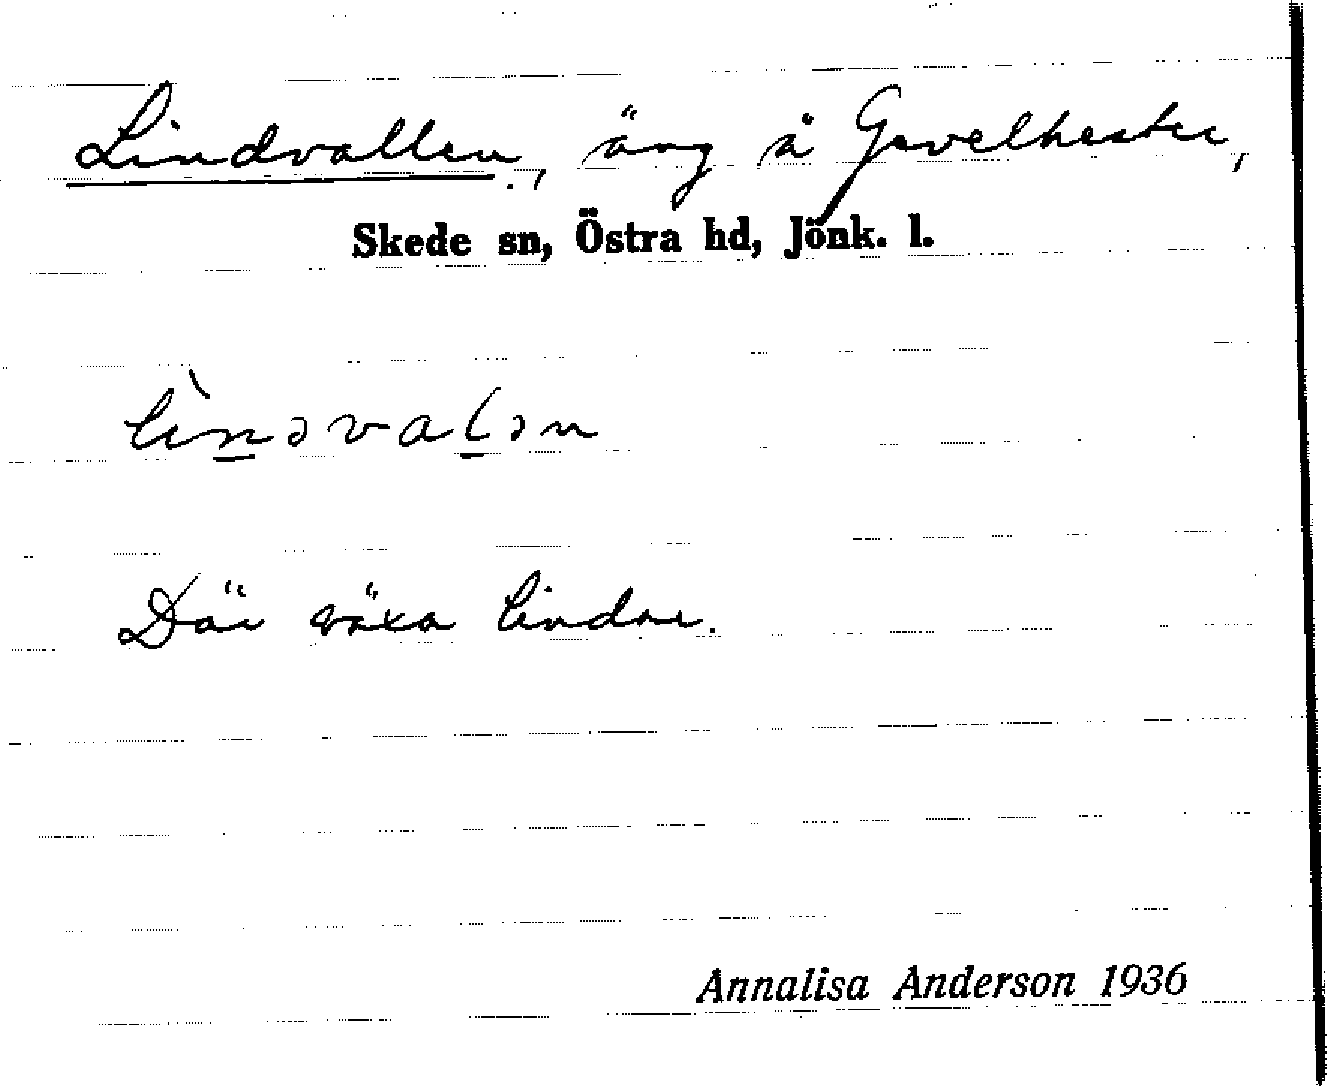 Lindvallen, äng å Gavelhester,
Skede sn, Östra hd, Jönk. l.
lìnəvalən
Där växa lindar.
Annalisa Anderson 1936